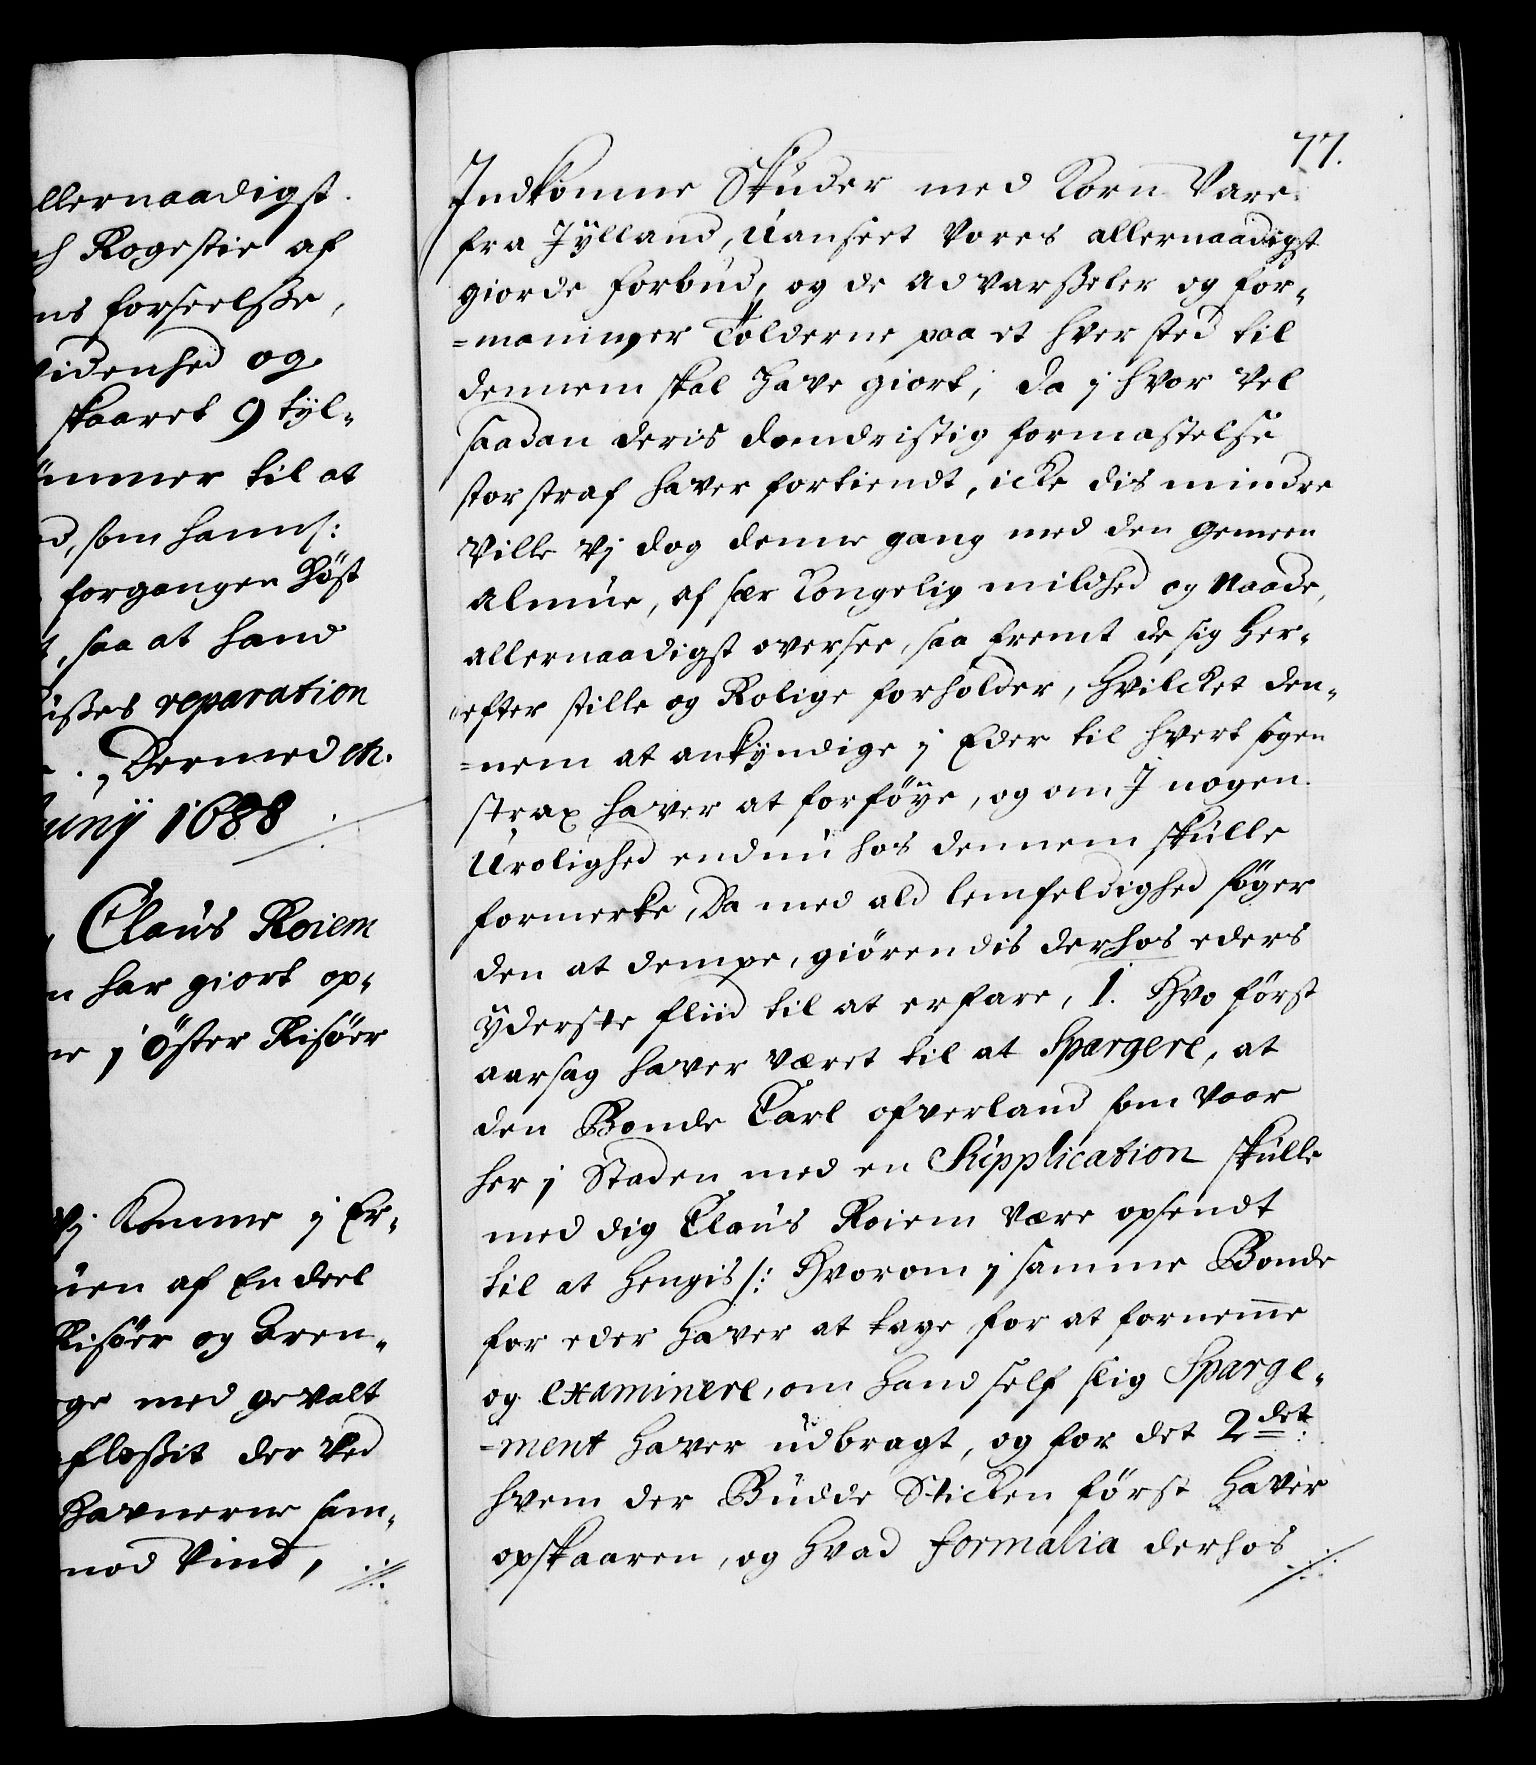 llernaadigst.
ch Rogestie af
ns forseelsse,
videnhed og
skaaret 9 tyl-
ümmer til at
d, som hannß:
forgangen Höst
t, saa at hand
üßes reparation
Dermed etc.
Juny 1688
Claus Roiem
n har giort op-
ne j Öster Risöer
Vj komme j Er-
üen af En deel
Risöer og Kren-
ge med gevalt
floßit der Ved
Havnerne sam-
mod Vind,
77.
Indkomne Skuder med Korn Vare
fra Jylland, Uanseet Vores allernaadigst
giorde forbud, og de advarßeler og for-
=maninger Tolderne paa et hver sted til
dennem skal have giort; da j hvor vel
saadan deris domdristig formastelse
stor straf haver fortiendt, icke dis mindre
Ville Vj dog denne gang med den gemeen
Almue, af sær Kongelig mildhed og Naade,
allernaadigst oversee, saa fremt de sig her-
efter stille og Rolige forholder, hvilcket den-
=nem at ankyndige j Eder til hvert sogen
strax haver at forföye, og om J nogen
Urolighed endnu hos dennem skulle
formerke, Da med ald lemfeldighed söger
den at dempe, giörendis derhos eders
yderste fliid til at erfare, 1. Hvo först
aarsag haver været til at Spargere, at
den Bonde Carl ofverland som vaar
her j Staden med en Supplication skulle
med dig Claus Roiem være opsendt
til at hengis /: Hvorom j samme Bonde
for eder haver at tage for at fornemme
og examinere, om hand self slig Sparge-
=ment haver udbragt, og for det 2det:
hvem der Budde Sticken först haver
opskaaren, og hvad formalia derhos